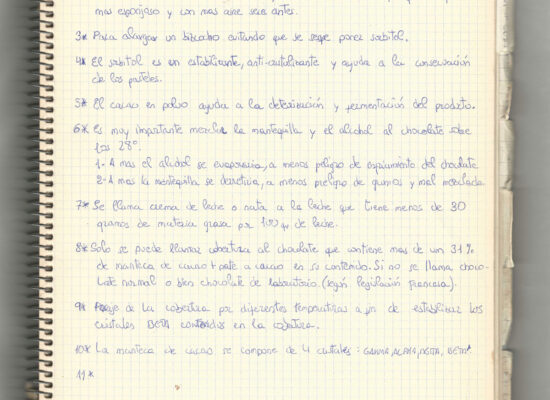 mas esponjoso y con mas aire sera antes.
3* Para alargar un bizcocho evitando que se seque poner sorbitol.
4* El sorbitol es un establizante, anti-cristalizante y ayuda a la conservación
de los pasteles.
5* El cacao en polvo ayuda a la deterioración y fermentación del producto.
6* Es muy importante mezclar la mantequilla y el alcohol al chocolate sobre
los 28º.
1- A mas el alcohol se evaporaria, a menos peligro de espesamiento del chocolate
2- A mas la mantequilla se derretiria, a menos peligro de grumos y mal mezclada
7* Se llama crema de leche o nata a la leche que tiene menos de 30
gramos de materia grasa por 100 gr de leche.
8* Solo se puede llamar cobertura al chocolate que contiene mas de un 31%
de manteca de cacao + pate a cacao en su contenido. Si no se llama choco-
late normal o bien chocolate de laboratorio (según legislación francesa).
9* de la cobertura por diferentes temperaturas a fin de establizar los
cristales BETA contenidos en la cobertura.
10* La manteca de cacao se compone de 4 cristales: GAMMA, ALPHA, BETA
11*